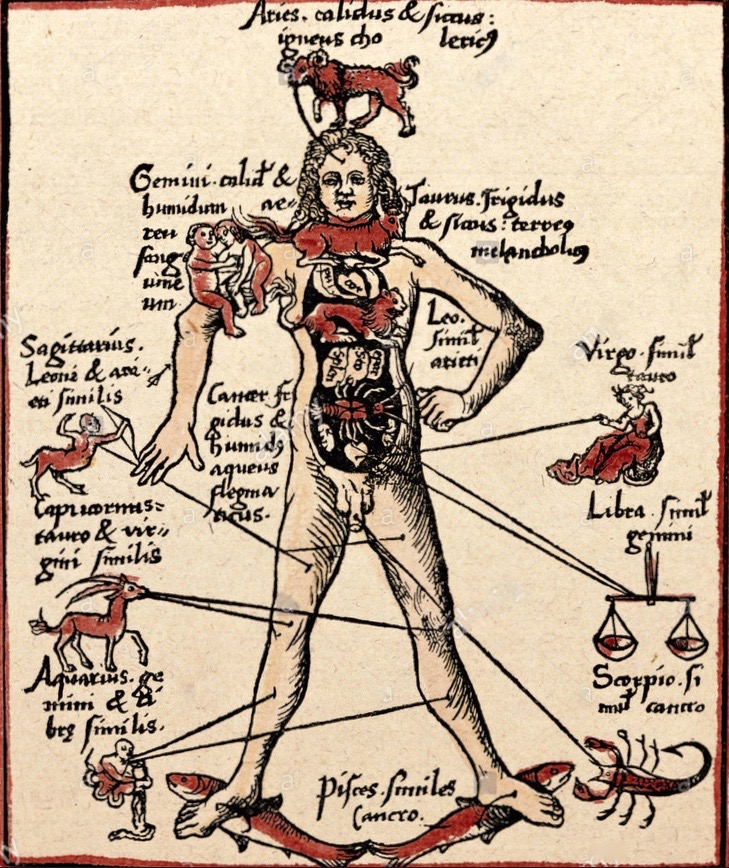 Aries. calidus & siccus:
igneus cho lericꝰ
Gemini. calid⁹ &
humidum ae=
reu
sang
uine
um
Taurus. frigidus
& siccus: terreꝰ
melancholicꝰ
Leo.
simil
arieti
Virgo simil
tauro
Sagittarius.
Leoni & ari=
eti similis
Cancer fri
gidus &
humidꝰ
aqueus
flegma
ticus.
Capricornus=
tauro & vir=
gini similis
Libra simil
gemini
Aquarius. ge
mini & li
brę similis.
Scorpio. si
mil cancro
Pisces. similes
Cancro.